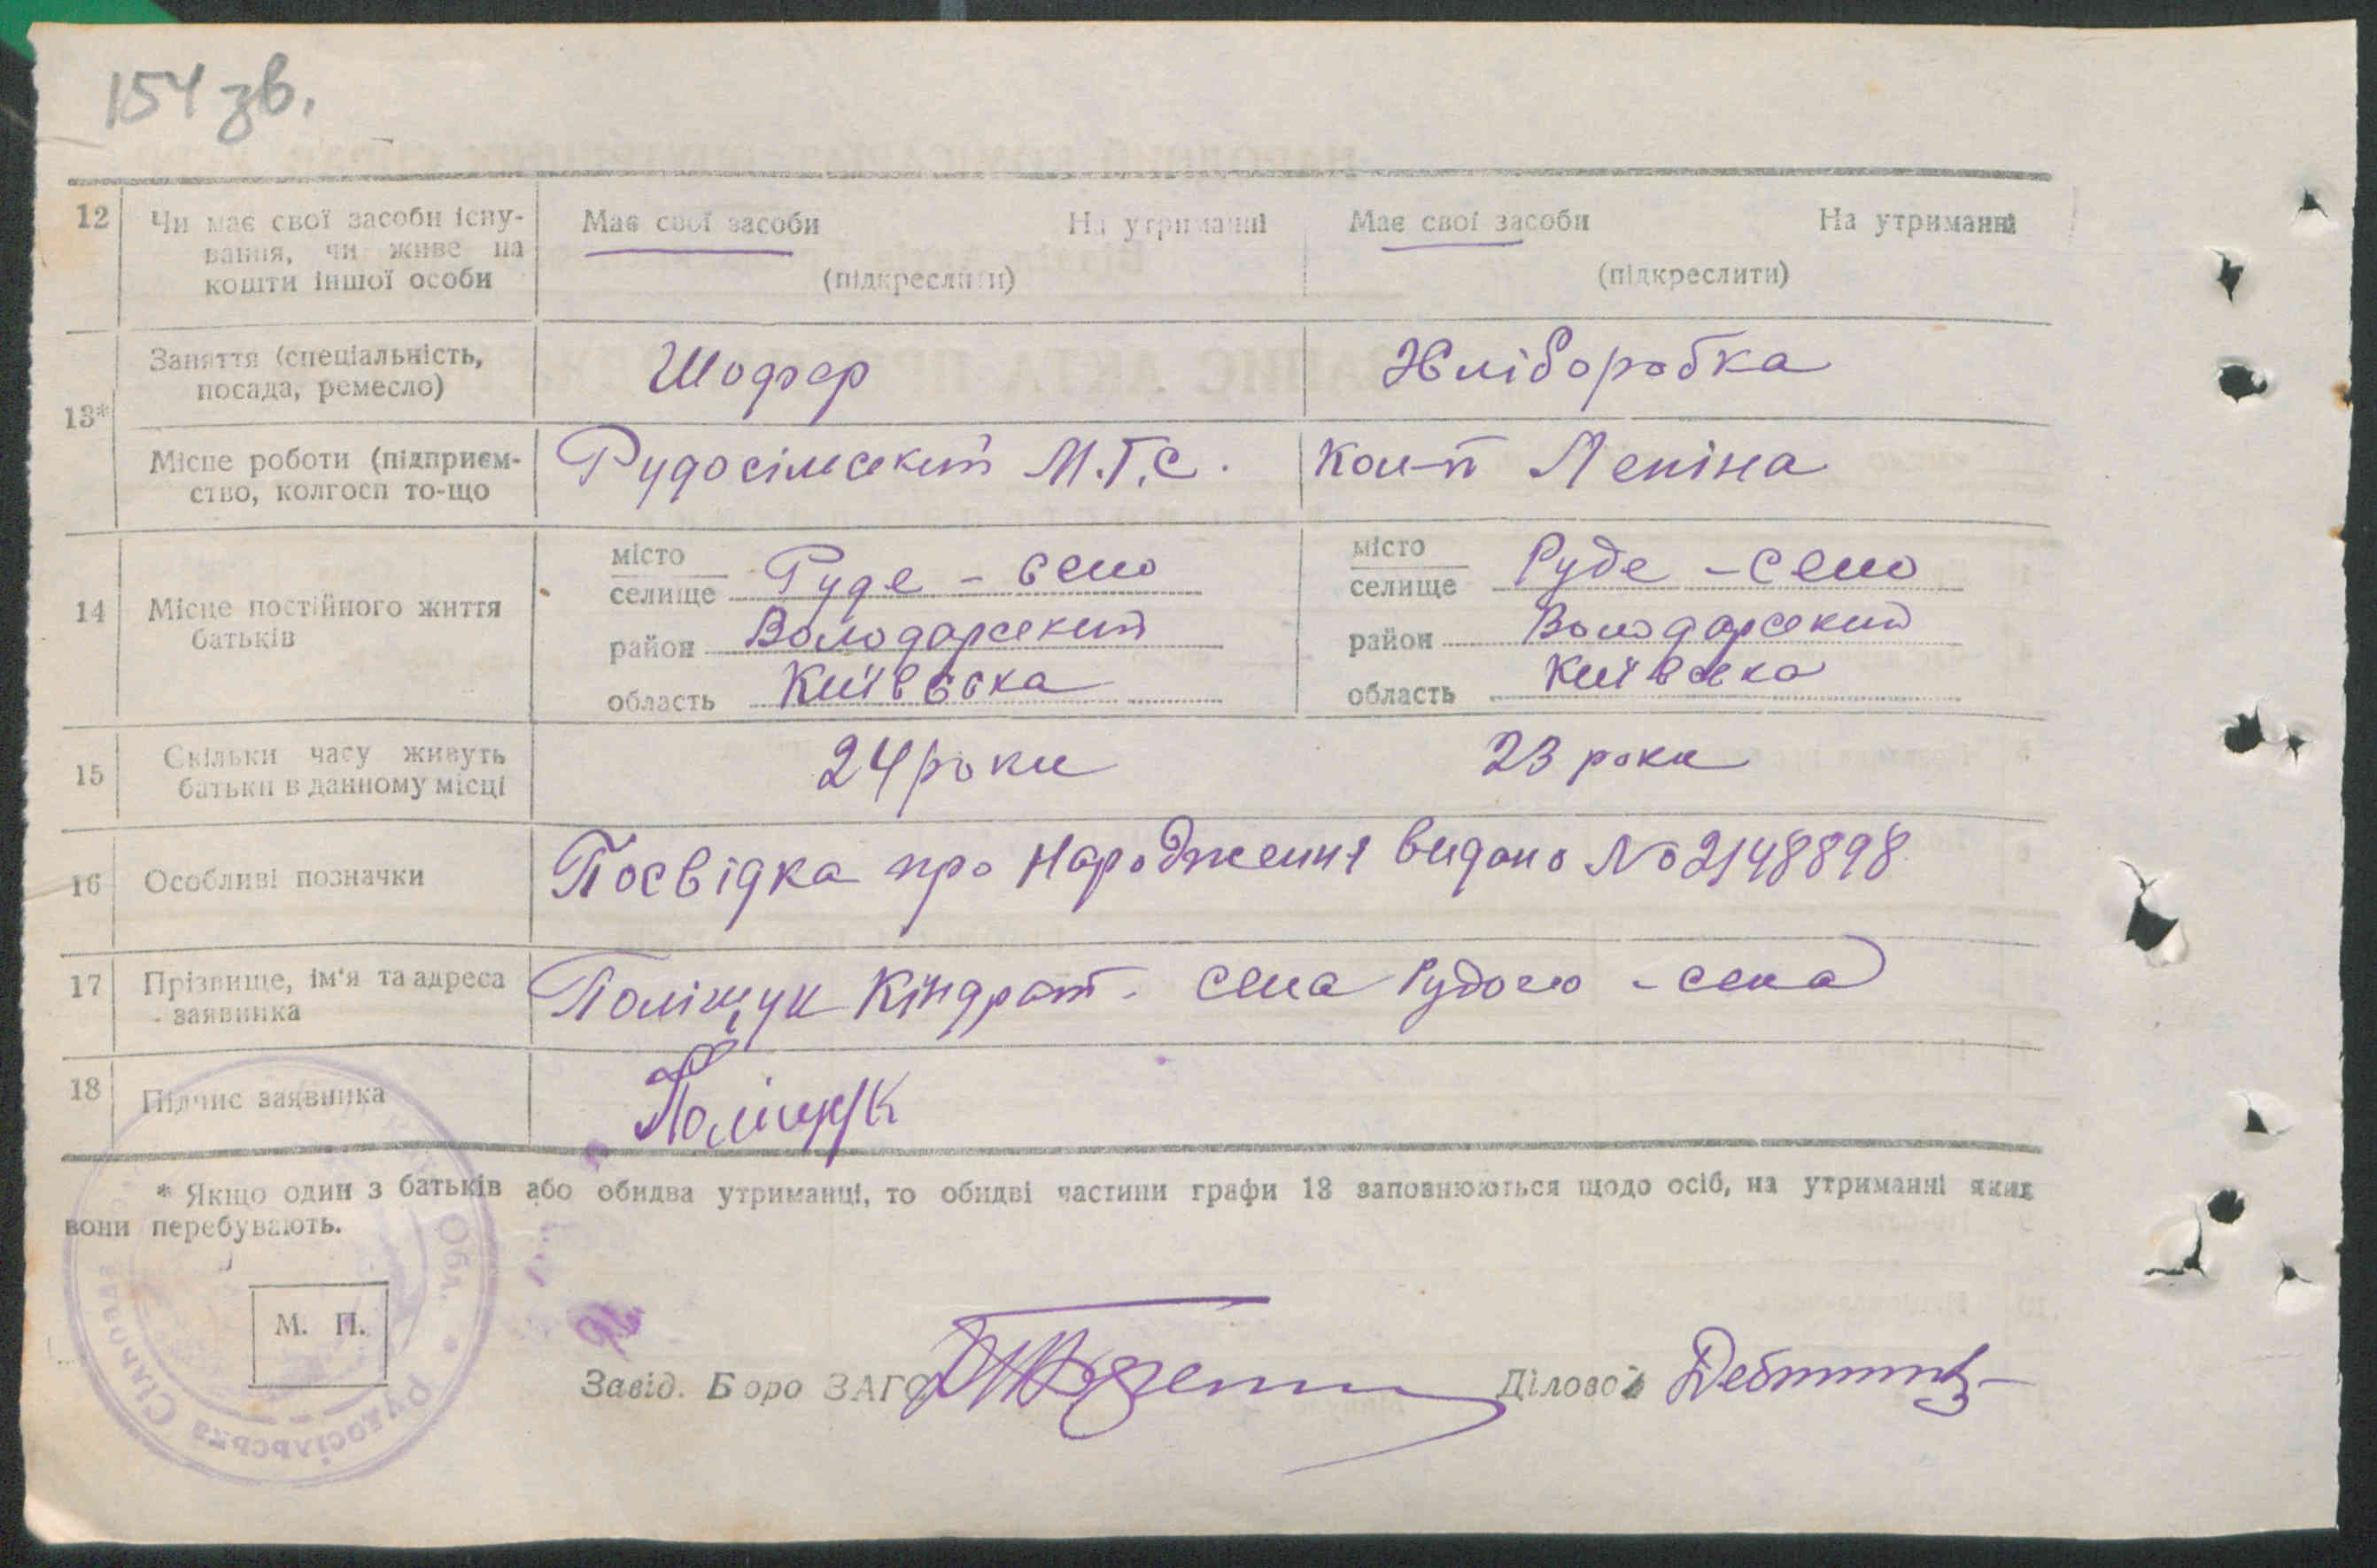 154 зв.
12 Чи має свої засоби існу-
вання, чи живе на
кошти іншої особи
Має свої засоби На утриманні
(підкреслити)
Має свої засоби На утриманні
(підкреслити)
13*
Заняття (спеціальність,
посада, ремесло)
Шофер
Хліборобка
Місце роботи (підприєм-
ство, колгосп то-що
Рудосільский М.Т.С.
Кол-п Леніна
14 Місце постійного життя
батьків
місто
селище Руде - село
район Володарский
область Київська
місто
селище Руде - село
район Володарский
область Київська
15 Скільки часу живуть
батьки в данному місці
24 роки
23 роки
16 Особливі позначки
Посвідка про народження видано No 2148898
17 Прізвище, ім'я та адреса
заявника
Поліщук Кіндрат. села Рудого - села
18 Підпис заявника
Поліщук
* Якщо один з батьків або обидва утриманці, то обидві частини графи 13 заповнюються щодо осіб, на утриманні яких
вони перебувають.
М. П.
Обл. Рудосільська Сільр
Завід. Бюро ЗАГС
Діловод